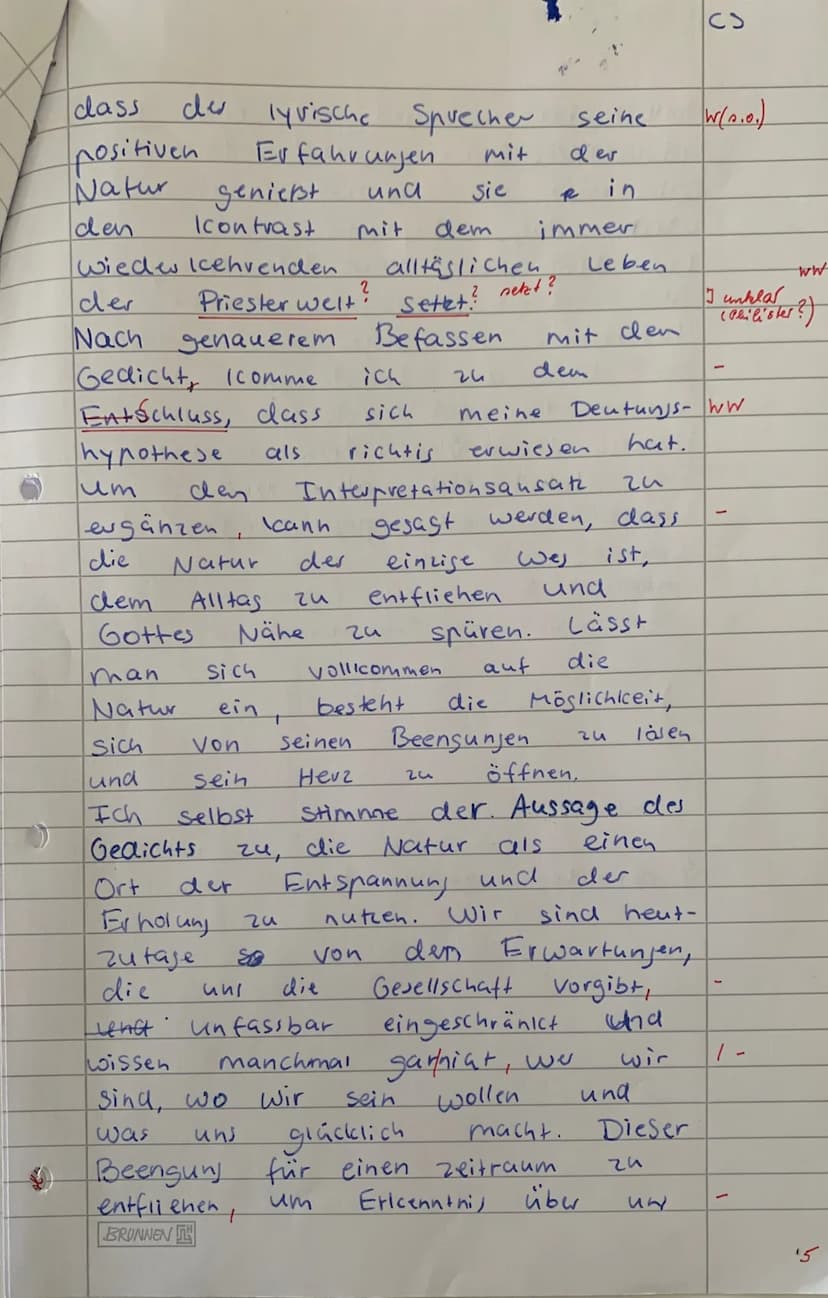 C)
dass der lyrische Sprecher seine W(s.o.)
positiven Erfahrungen mit der
Natur genießt und sie in
den Kontrast mit dem immer
wiederkehrenden alltäglichen Leben WW
der Priesterwelt? setzt? setzt? I unklar (Philister?)
Nach genauerem Befassen mit den
Gedicht, komme ich zu dem -
Entschluss, dass sich meine Deutungs- WW
hypothese als richtig erwiesen hat.
Um den Interpretationsansatz zu
ergänzen, kann gesagt werden, dass -
die Natur der einzige Weg ist,
dem Alltag zu entfliehen und
Gottes Nähe zu spüren. Lässt
man sich vollkommen auf die
Natur ein, besteht die Möglichkeit,
sich von seinen Beengungen zu lösen
und sein Herz zu öffnen.
Ich selbst stimme der Aussage des
Gedichts zu, die Natur als einen
Ort der Entspannung und der
Erholung zu nutzen. Wir sind heut-
zutage so von den Erwartungen,
die uns die Gesellschaft vorgibt, -
und unfassbar eingeschränkt und
wissen manchmal gar/nicht, wer wir / -
sind, wo wir sein wollen und
was uns glücklich macht. Dieser
Beengung für einen Zeitraum zu
entfliehen, um Erkenntnis über uns -
BRUNNEN
'5